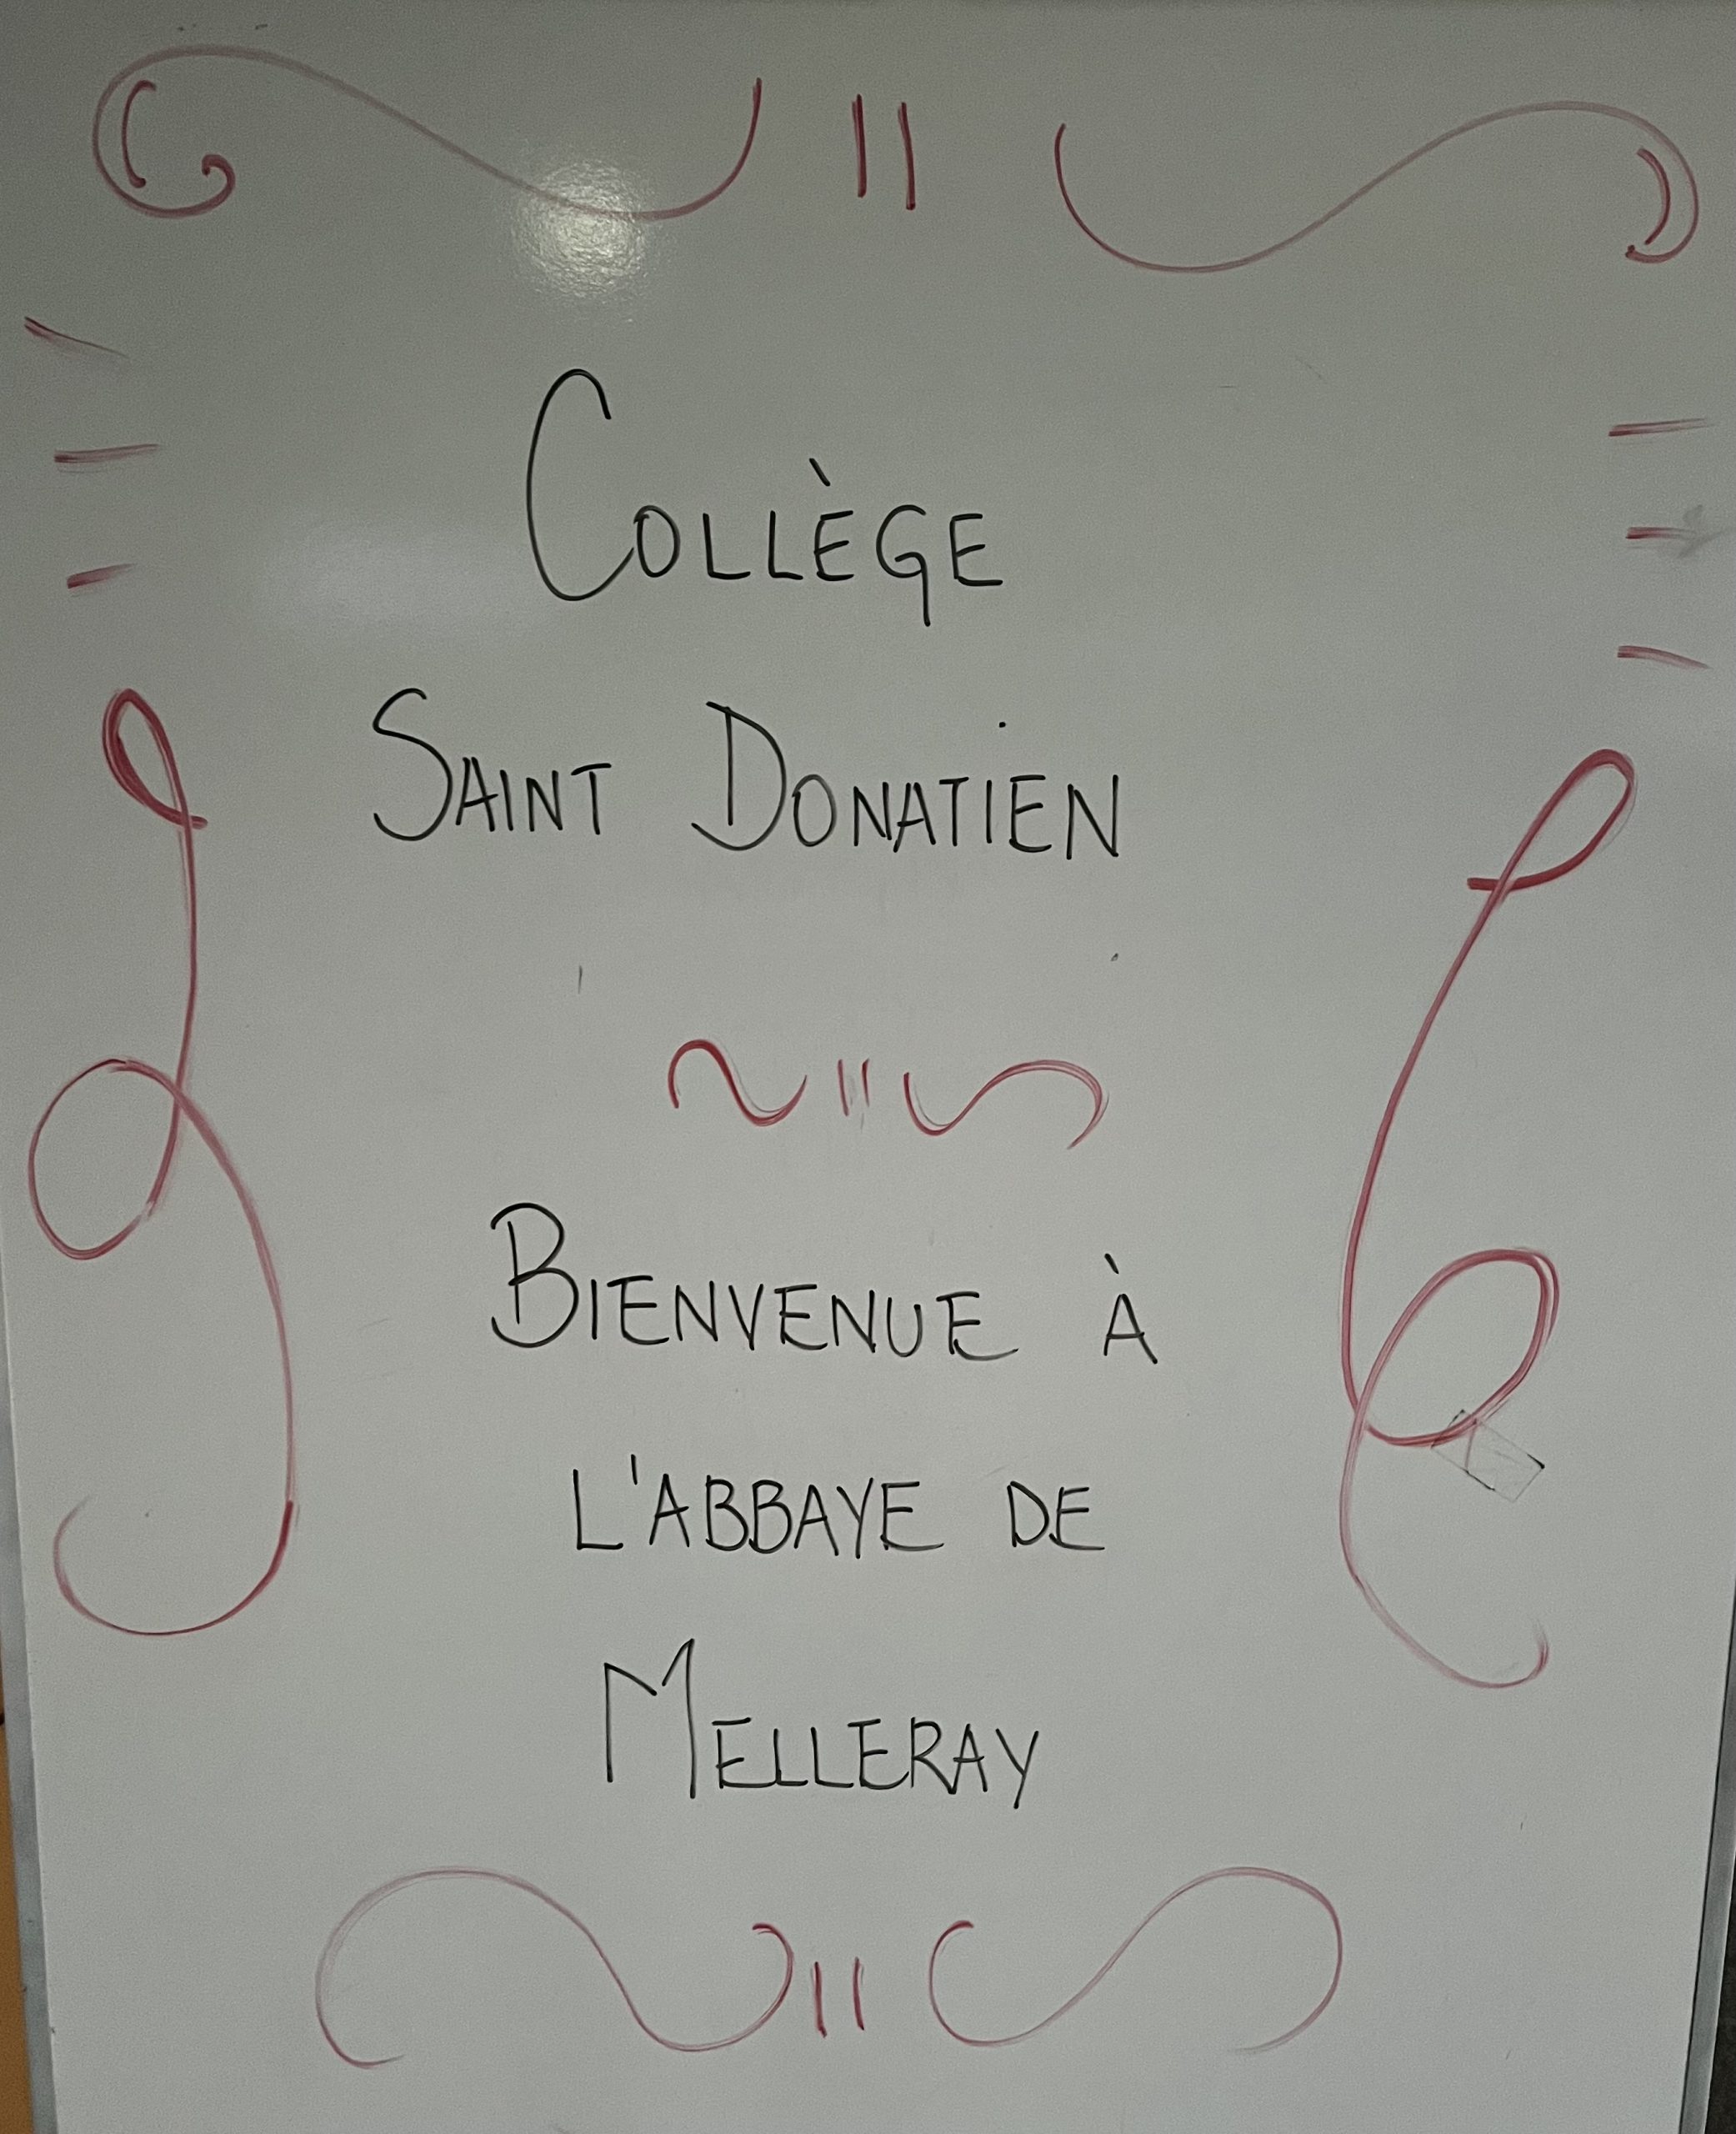 COLLÈGE
SAINT DONATIEN
BIENVENUE À
L'ABBAYE DE
MELLERAY